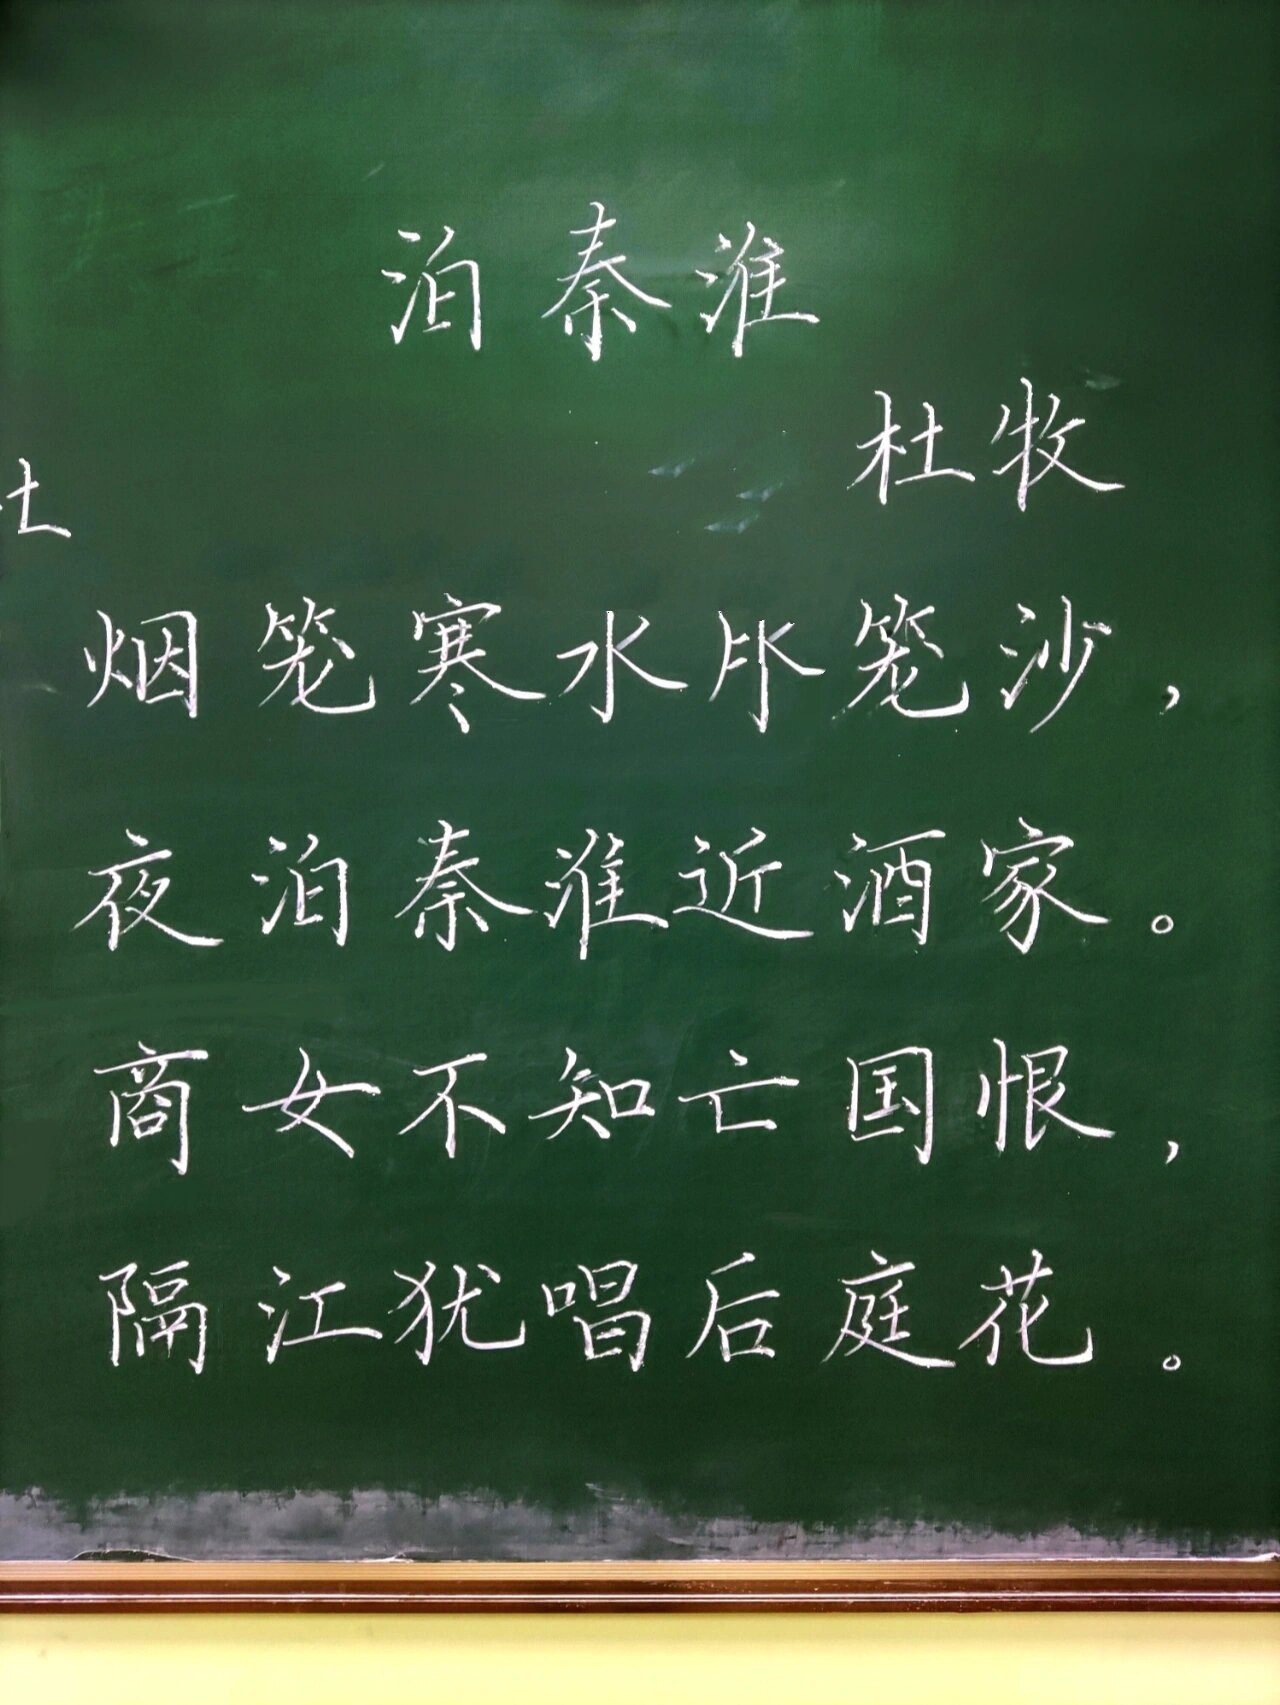 泊秦淮
杜牧
烟笼寒水笼沙，
夜泊秦淮近酒家。
商女不知亡国恨，
隔江犹唱后庭花。